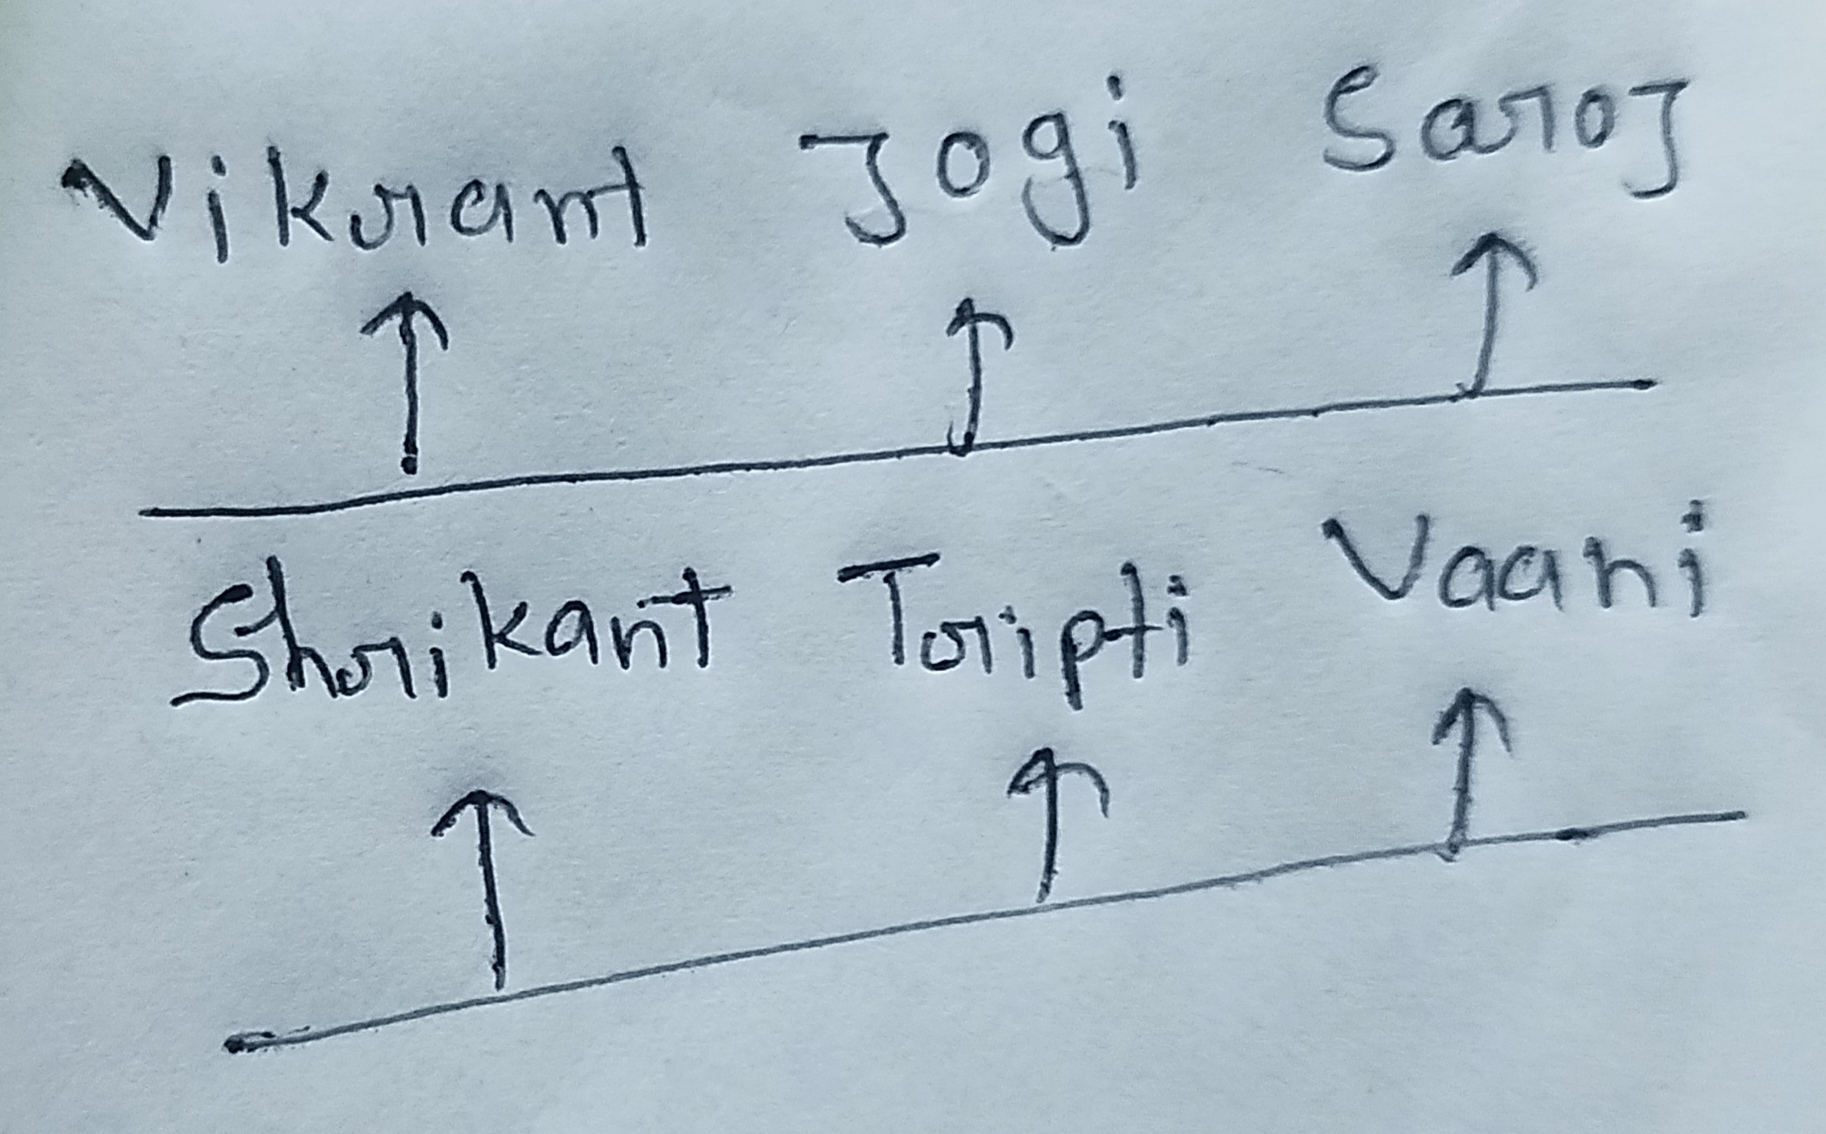 Vikrant Jogi Saroj
Shrikant Tripti Vaani